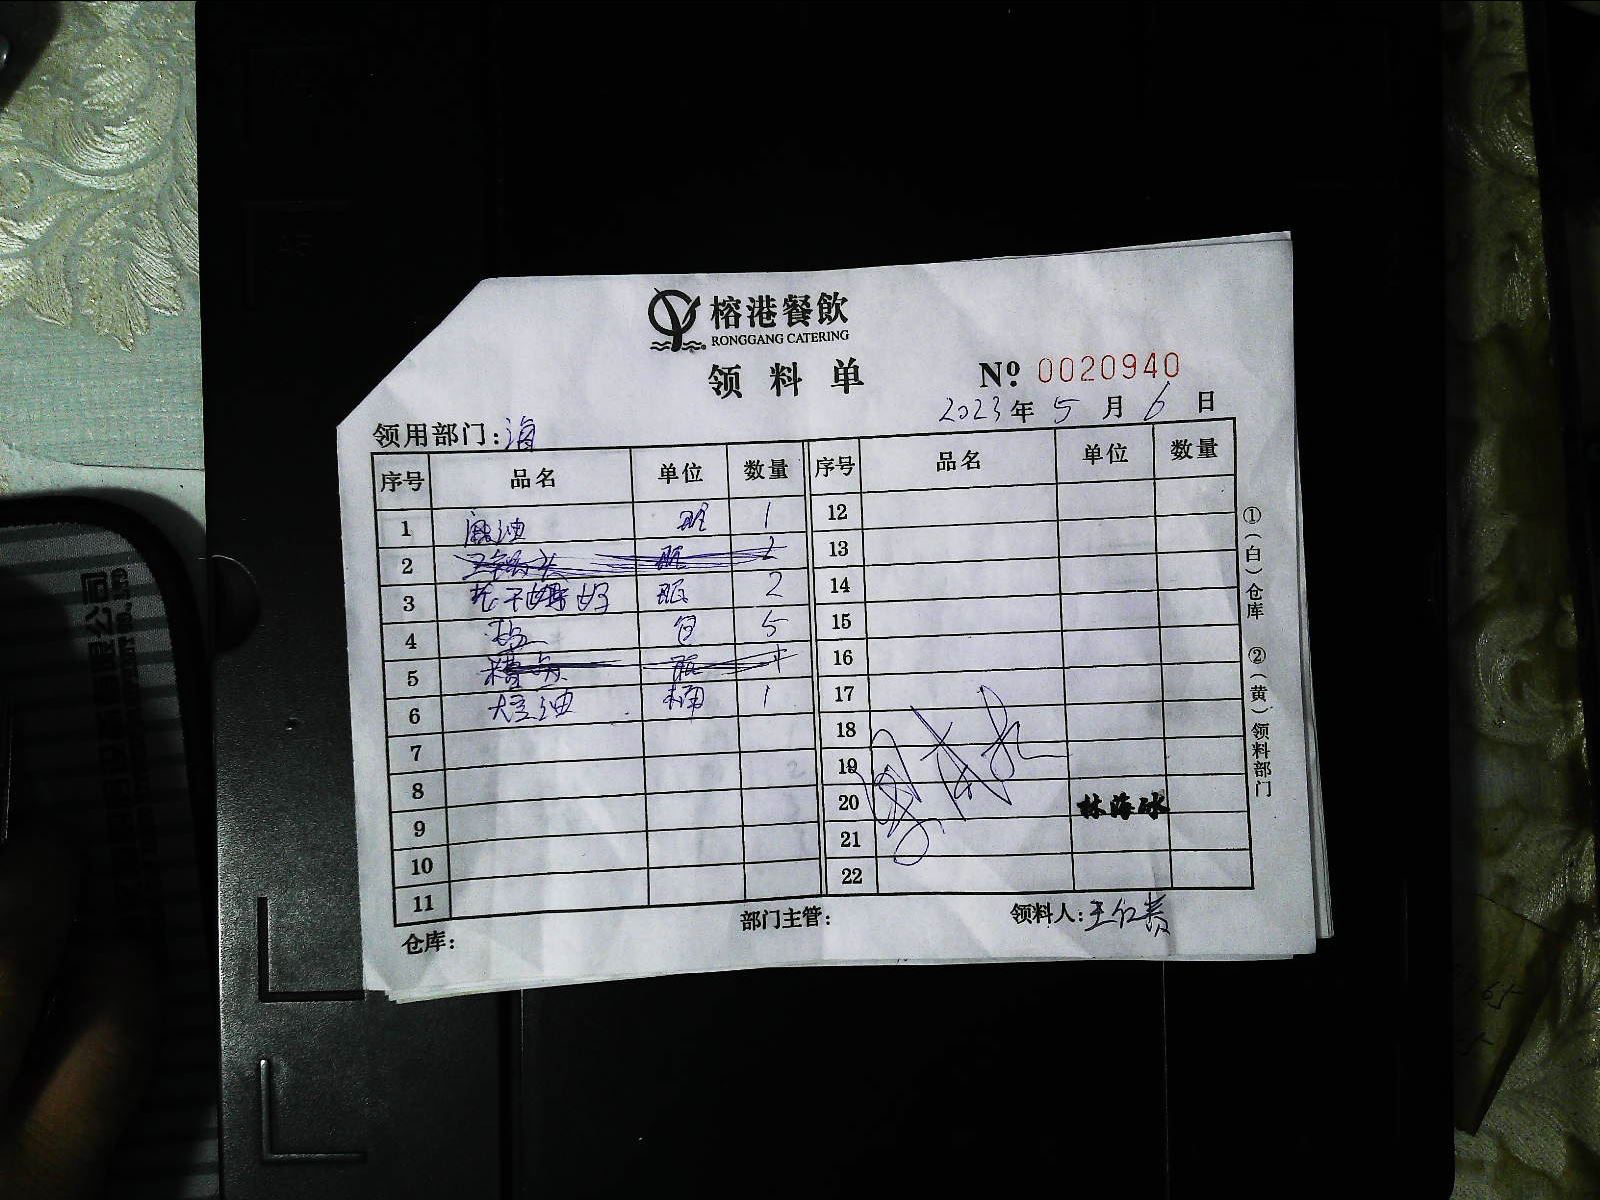 榕港餐飲
RONGGANG CATERING
领料单
№ 0020940
2023年5月6日
领用部门:海
序号 品名 单位 数量 序号 品名 单位 数量
1 麻油 瓶 1 12
2 瓶 2 13
3 老干妈 瓶 2 14
4 盐 包 5 15
5 瓶 16
6 大豆油 桶 1 17
7 18
8 19
9 20 林海冰
10 21
11 22
仓库: 部门主管: 领料人:王红
①(白)仓库 ②(黄)领料部门
A5
限公司